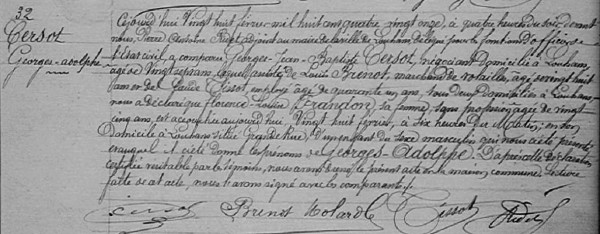 32
Cersot
Georges-adolphe
Cejourd'hui Vingt huit février mil huit cent quatre vingt onze, à quatre heures du soir devant
nous, Pierre adjoint au maire de la ville de Louhans délégué pour les fonctions d'officier
de l'état civil, a comparu Georges-Jean-Baptiste Cersot, négociant domicilié à Louhans,
âgé de Vingt sept ans, lequel assisté de Louis Brenot, marchand de volailles, âgé de vingt huit
ans et de Tissot, employé âgé de quarante un ans, tous deux domiciliés à Louhans,
nous a déclaré que Florence Grandon, sa femme, sans profession âgée de vingt
cinq ans, est accouchée aujourd'hui Vingt huit février, à six heures du Matin, en son
domicile à Louhans situé Grande Rue, d'un enfant du sexe masculin qui nous a été présenté
et auquel il a été donné les prénoms de Georges-Adolphe. D'après cette déclaration
certifiée véritable par les témoins, nous avons dressé le présent acte en la maison commune. Lecture
faite de cet acte, nous l'avons signé avec les comparants.
Cersot Brenot Molard Tissot